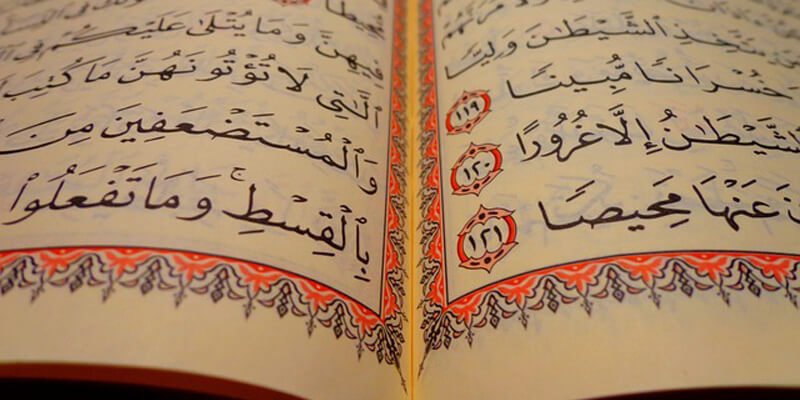 يَتَّخِذِ ٱلشَّيْطَٰنَ وَلِيًّا
خُسْرَانًا مُّبِينًا ١١٩
ٱلشَّيْطَٰنُ إِلَّا غُرُورًا ١٢٠
عَنْهَا مَحِيصًا ١٢١
مُّحِيطًا
فِيهِنَّ وَمَا يُتْلَىٰ عَلَيْكُمْ فِى
ٱلَّٰتِى لَا تُؤْتُونَهُنَّ مَا كُتِبَ
وَٱلْمُسْتَضْعَفِينَ مِنَ
بِٱلْقِسْطِ ۚ وَمَا تَفْعَلُوا۟